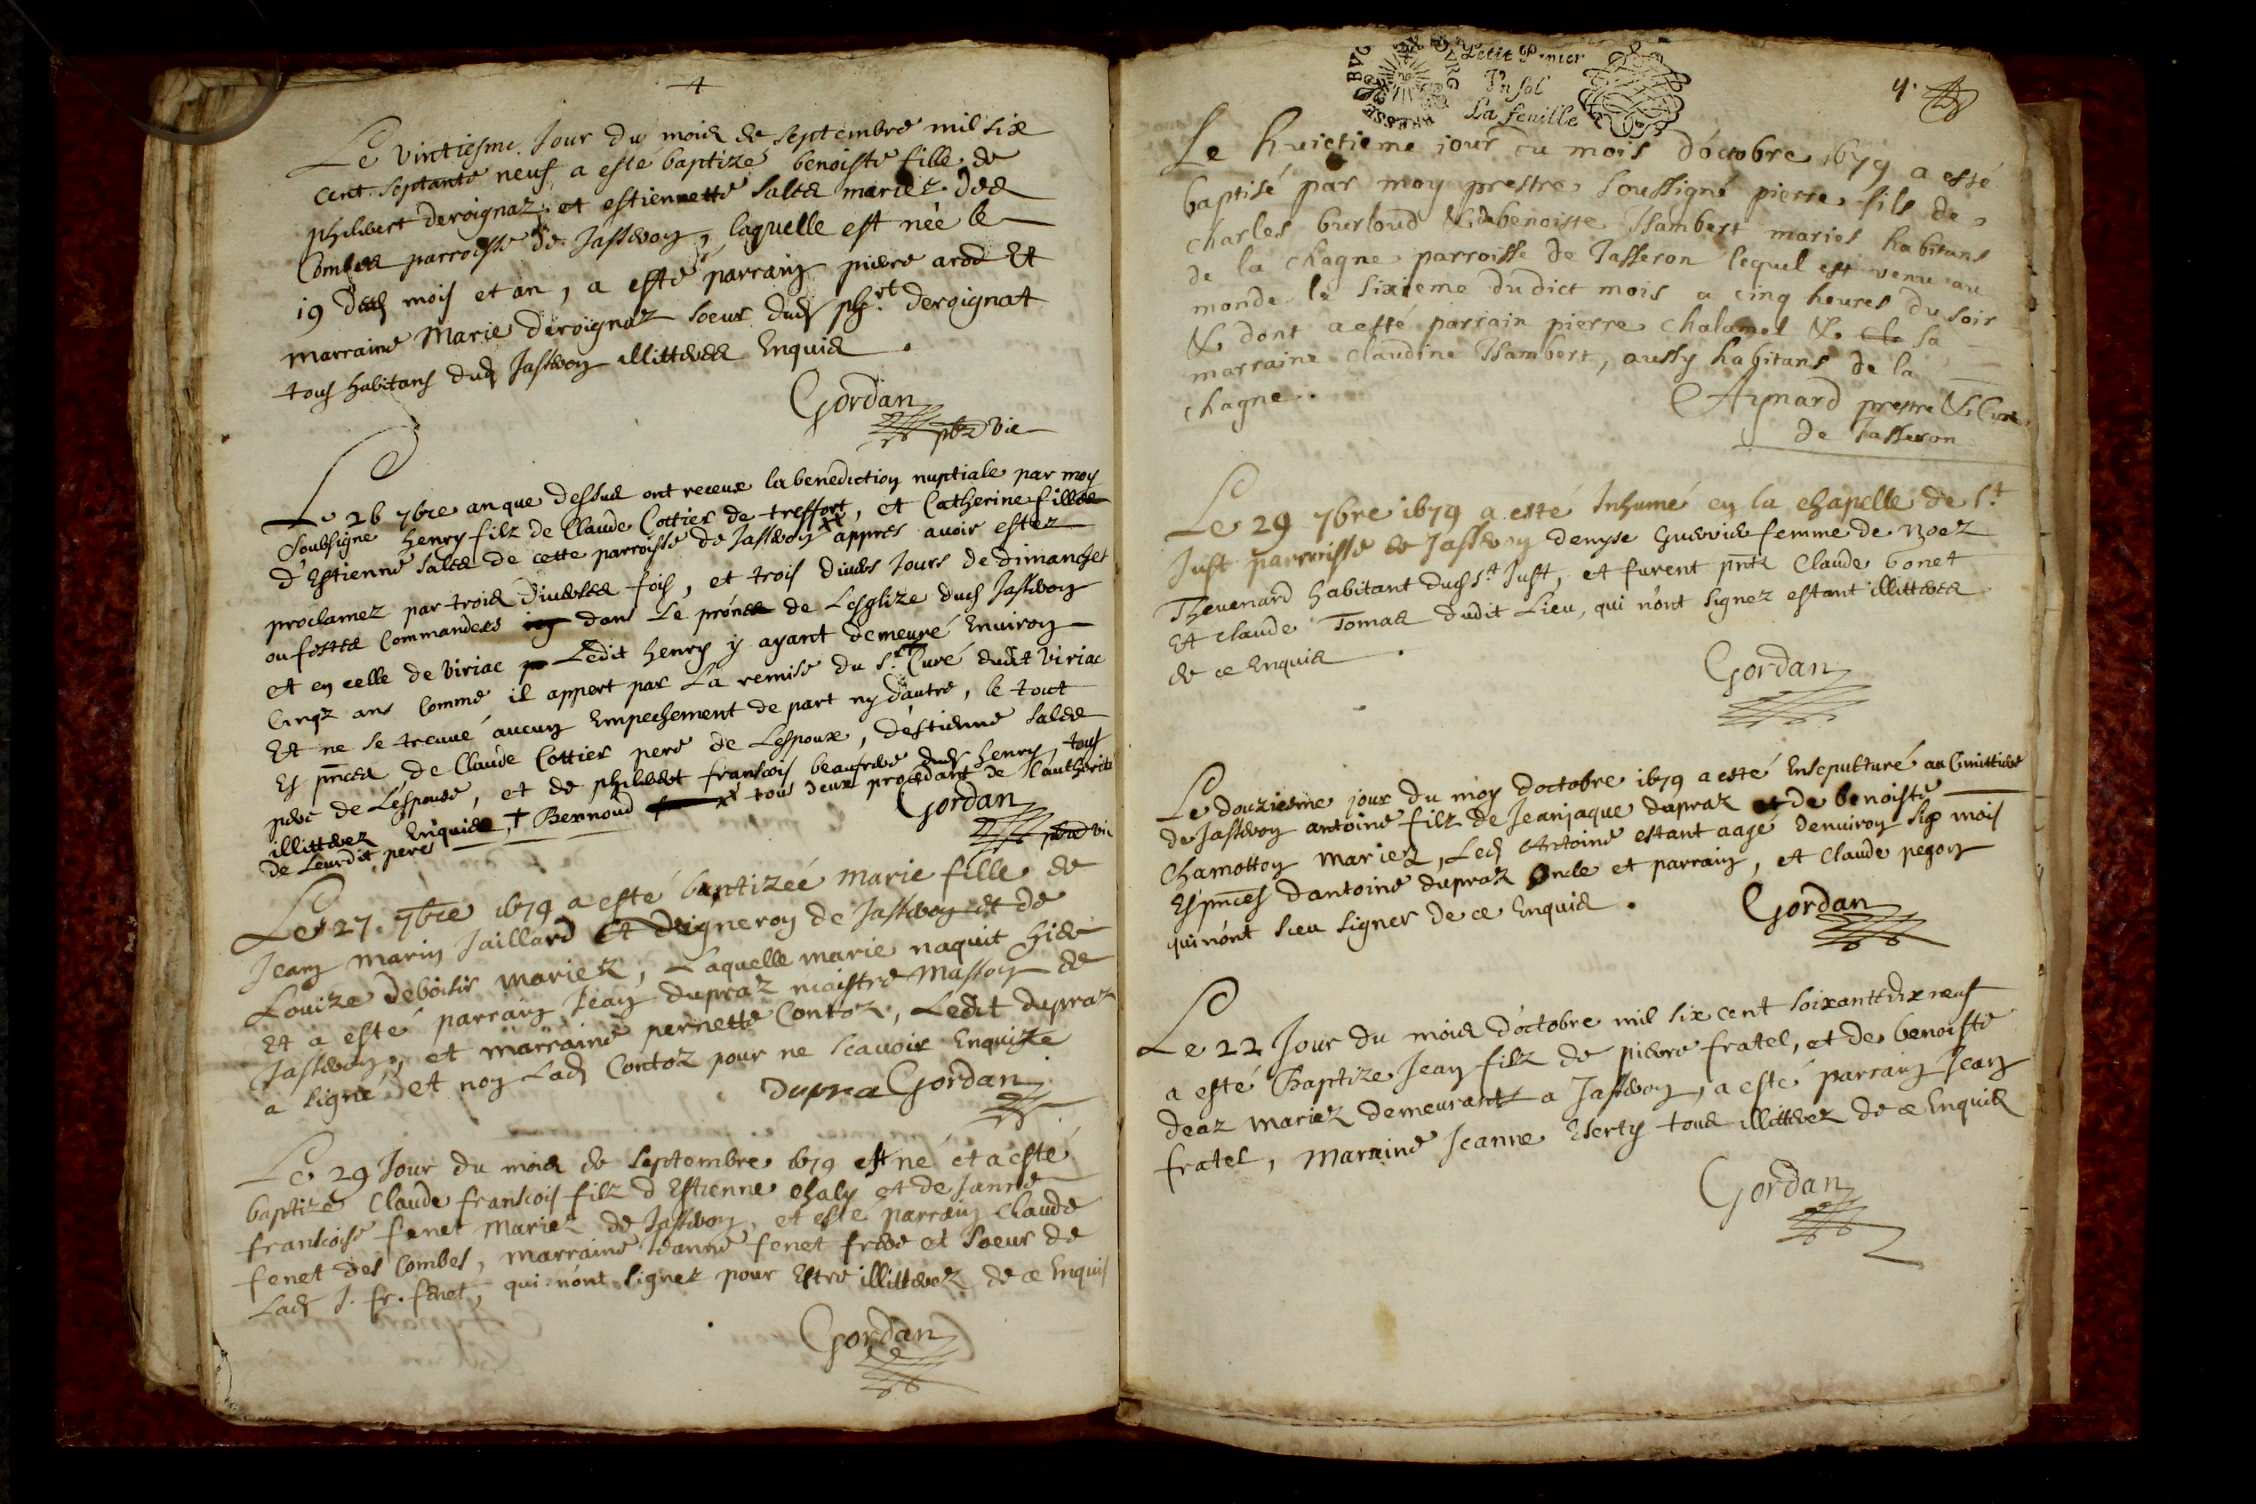 4
Le vintiesme Jour du mois de septembre mil six
cent septante neuf a esté baptizé benoiste fille de
philibert deroignaz et estiennette sales mariez des
Combes parroisse de Jasseron, laquelle est née le
19 desd mois et an, a esté parrain pierre arod Et
marraine Marie deroignaz soeur dud ph.rt deroignat
tous habitans dud Jasseron illitteres Enquis .
Gordan
pbre vic
Le 26 7bre an que dessus ont receus la benediction nuptiale par moy
soubsigne henry filz de Claude Cottier de treffort, et Catherine fille
d'Estienne sales de cette parroisse de Jasseron appres avoir estez
proclamez par trois diverses fois, et trois divers Jours de dimanches
ou festes commandees dans Le prones de Lesglize dud Jasseron
et en celle de viriac Ledit henry y ayant demeuré Environ
Cinqz ans comme il appert par La remise du S.r Curé dudit viriac
Et ne se treuve aucun Empechement de part ny dautre, le tout
Es pnces de Claude Cottier pere de Lespoux, d'estienne sales
pere de Lespouse, et de philibert francois beaufrere dud henry, tous
illitterez Enquis, + Bernoud x tous deux procedant de L'autherite
de Leurdit peres
Gordan
pbre vic
Le 27. 7bre 1679 a esté baptizeé marie fille de
Jean marin Jaillard Et vigneron de Jasseron et de
Louize deboisir mariez, Laquelle marie naquit hier
Et a esté parrain Jean dupraz maistre masson de
Jasseron, et marraine pernette Contoz, Ledit dupraz
a signé et non Lad Contoz pour ne scavoir Enquize
dupra Gordan
Le 29 Jour du mois de septembre 1679 est né et a esté
baptizé Claude francois filz d Estienne chaly et de Janne
francoise fenet Mariez de Jasseron, et esté parrain Claude
fenet des Combes, marraine Jeanne fenet frere et soeur de
Lad J. fr. fenet, qui n'ont signez pour Estre illitterez de ce Enquis
Gordan
Petit Papier
Un sol
La feuille
4.
Le huictieme jour du mois d'octobre 1679 a esté
baptisé par moy prestre soussigné pierre fils de
charles burloud & de benoiste Isambert mariés habitans
de la chagne parroisse de Jasseron lequel est venu au
monde le sixieme dudict mois a cinq heures du soir
& dont a esté parrain pierre chalamel & sa
marraine claudine Isambert, aussy habitans de la
chagne.
Aymard prestre & Curé
de Jasseron
Le 29 7bre 1679 a esté Inhumé en la chapelle de S.t
Just parroisse de Jasseron denyse femme de noez
Thevenard habitant dud S.t Just, et furent pnts Claude bonet
Et claude Tomas dudit Lieu, qui n'ont signez estant illitteres
de ce Enquis .
Gordan
Le douziesme jour du moy doctobre 1679 a esté Ensepulturé au Cimittiere
de Jasseron antoine filz de Jeanjaque dupraz et de benoiste
Chamotton mariez, Led Antoine estant aagé denviron six mois
Es pnces d'antoine dupraz Oncle et parrain, et Claude pegon
qui n'ont sceu signer de ce Enquis .
Gordan
Le 22 Jour du mois d'octobre mil six cent soixantedix neuf
a esté Baptize Jean filz de pierre fratel, et de benoiste
deaz mariez demeurantz a Jasseron, a esté parrain Jean
fratel, Maraine Jeanne tous illitterez de ce Enquis
Gordan